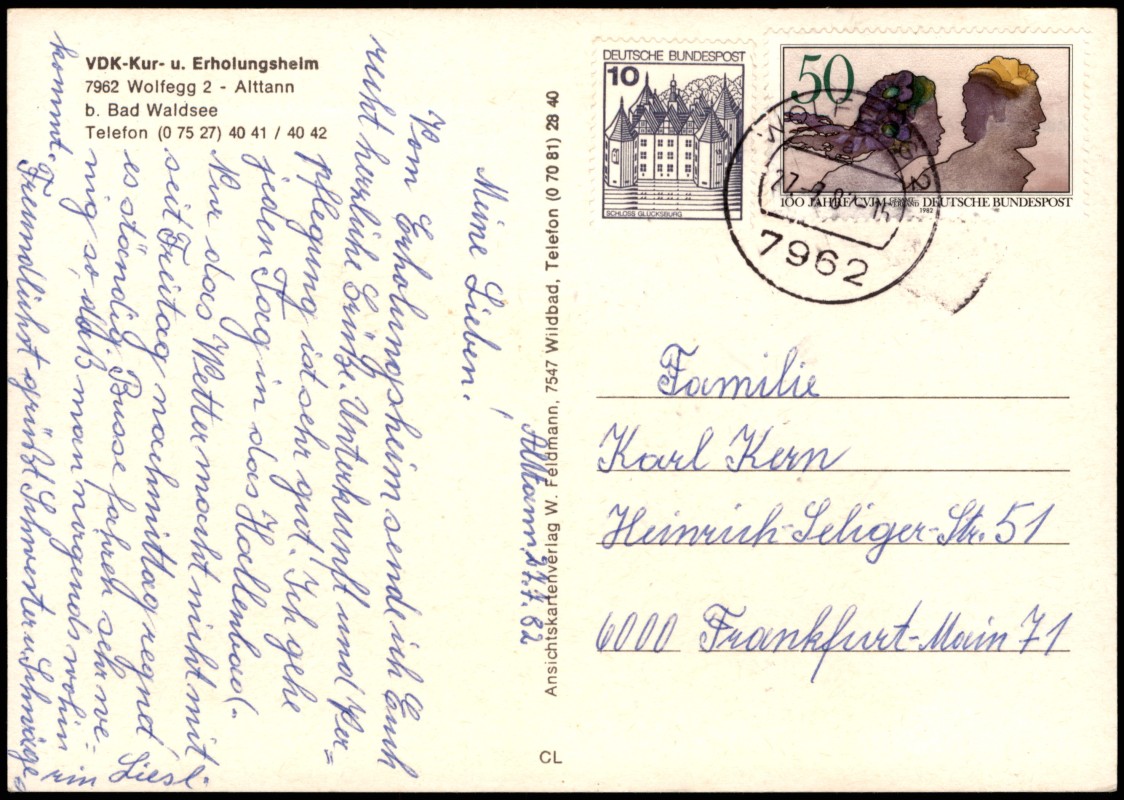 VDK-Kur- u. Erholungsheim
7962 Wolfegg 2 - Alttann
b. Bad Waldsee
Telefon (0 75 27) 40 41 / 40 42
Alttann 27.7.82
Meine Lieben!
Vom Erholungsheim sende ich Euch
recht herzliche Grüße. Unterkunft und Ver=
pflegung ist sehr gut. Ich gehe
jeden Tag in das Hallenbad.
Nur das Wetter macht nicht mit
seit Freitag nachmittag regnet
es ständig. Busse fahren sehr we=
nig so, daß man nirgends wohin
kommt.
Freundlichst grüßt Schwester u. Schwäge=
rin Liesl
Ansichtskartenverlag W. Feldmann, 7547 Wildbad, Telefon (0 70 81) 28 40
CL
DEUTSCHE BUNDESPOST
10
SCHLOSS GLÜCKSBURG
50
100 JAHRE CVJM
1982
DEUTSCHE BUNDESPOST
WOLFEGG 2
7962
Familie
Karl Kern
Heinrich-Seliger-Str. 51
6000 Frankfurt-Main 71